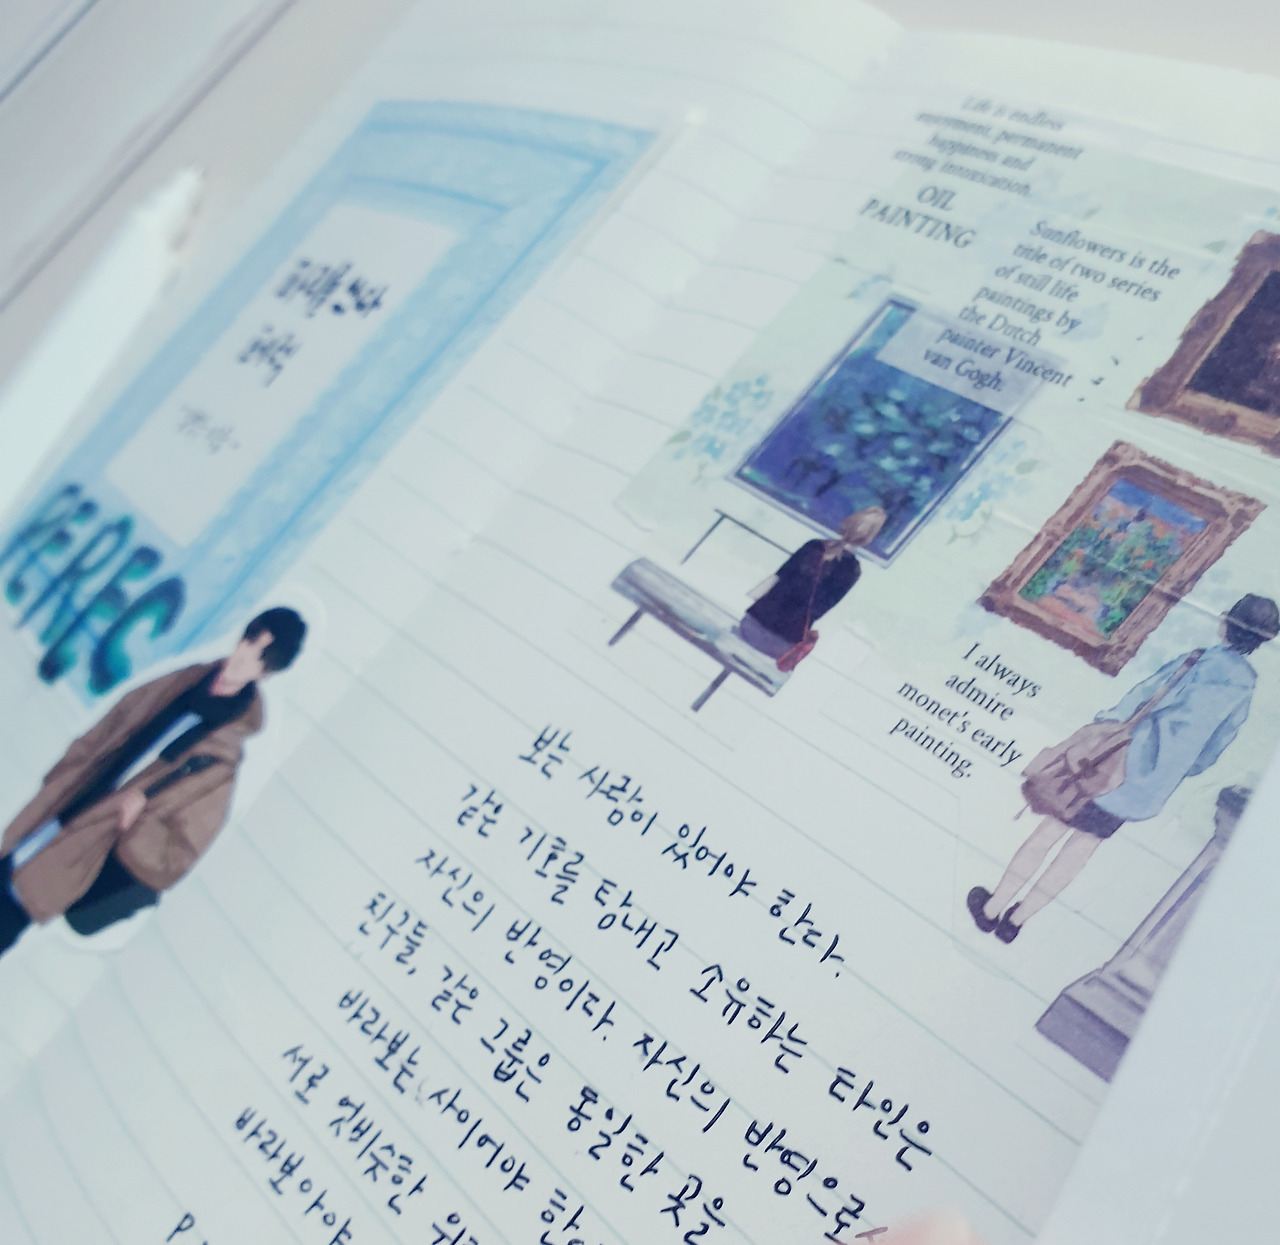 PEREC
Life is endless
enjoyment, permanent
happiness and
strong intoxication.
OIL
PAINTING
Sunflowers is the
title of two series
of still life
paintings by
the Dutch
painter Vincent
van Gogh.
I always
admire
monet's early
painting.
보는 사람이 있어야 한다.
같은 기호를 탐내고 소유하는 타인은
자신의 반영이다. 자신의 반영으로
친구들, 같은 그룹은 동일한 곳을
바라보는 사이여야
서로 엇비슷한
바라보아야
P.